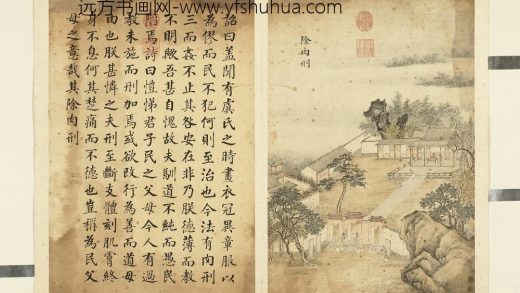 远方书画网：www.yfshuhua.com
除肉刑
詔曰蓋聞有虞氏之時畫衣冠異章服以
為僇而民不犯何則至治也今法有肉刑
三而姦不止其咎安在非乃朕德薄而教
不明歟吾甚自愧故夫馴道不純而愚民
陷焉詩曰愷悌君子民之父母今人有過
教未施而刑加焉或欲改行為善而道毋
由也朕甚憐之夫刑至斷支體刻肌膚終
身不息何其楚痛而不德也豈稱為民父
母之意哉其除肉刑